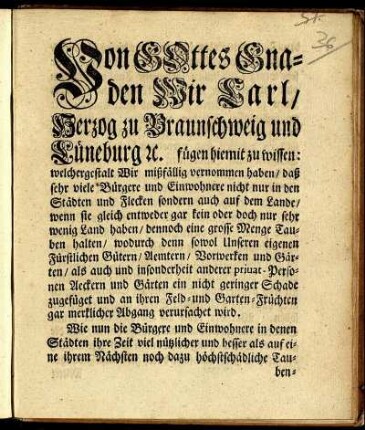 Von GOttes Gna-
den Wir Carl/
Herzog zu Braunschweig und
Lüneburg ꝛc. fügen hiemit zu wissen:
welchergestalt Wir mißfällig vernommen haben/ daß
sehr viele Bürgere und Einwohnere nicht nur in den
Städten und Flecken sondern auch auf dem Lande/
wenn sie gleich entweder gar kein oder doch nur sehr
wenig Land haben/ dennoch eine grosse Menge Tau-
ben halten/ wodurch denn sowol Unseren eigenen
Fürstlichen Gütern/ Aemtern/ Vorwerken und Gär-
ten/ als auch und insonderheit anderer privat-Perso-
nen Aeckern und Gärten ein nicht geringer Schade
zugefüget und an ihren Feld-und Garten-Früchten
gar merklicher Abgang verursachet wird.
Wie nun die Bürgere und Einwohnere in denen
Städten ihre Zeit viel nützlicher und besser als auf ei-
ne ihrem Nächsten noch dazu höchstschädliche Tau-
ben-